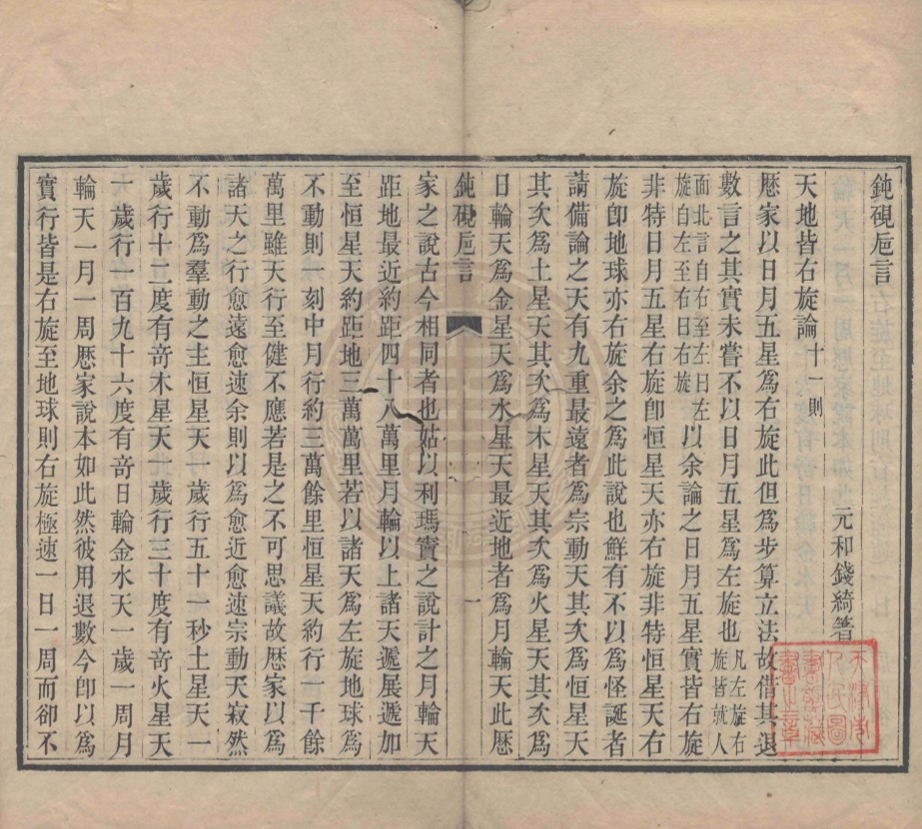 鈍硯卮言
元和錢綺箸
天地皆右旋論十一則
厯家以日月五星爲右旋此但爲步算立法故借其退
數言之其實未嘗不以日月五星爲左旋也凡左旋右旋皆就人
面北言自右至左曰左旋自左至右曰右旋以余論之日月五星實皆右旋
非特日月五星右旋卽恒星天亦右旋非特恒星天右
旋卽地球亦右旋余之爲此說也鮮有不以爲怪誕者
請備論之天有九重最遠者爲宗動天其次爲恒星天
其次爲土星天其次爲木星天其次爲火星天其次爲
日輪天爲金星天爲水星天最近地者爲月輪天此厯
鈍硯卮言
一
家之說古今相同者也姑以利瑪竇之說計之月輪天
距地最近約距四十八萬里月輪以上諸天遞展遞加
至恒星天約距地三萬萬里若以諸天爲左旋地球爲
不動則一刻中月行約三萬餘里恒星天約行一千餘
萬里雖天行至健不應若是之不可思議故厯家以爲
諸天之行愈遠愈速余則以爲愈近愈速宗動天寂然
不動爲羣動之主恒星天一歲行五十一秒土星天一
歲行十二度有奇木星天一歲行三十度有奇火星天
一歲行一百九十六度有奇日輪金水天一歲一周月
輪天一月一周厯家說本如此然彼用退數今卽以爲
實行皆是右旋至地球則右旋極速一日一周而卻不